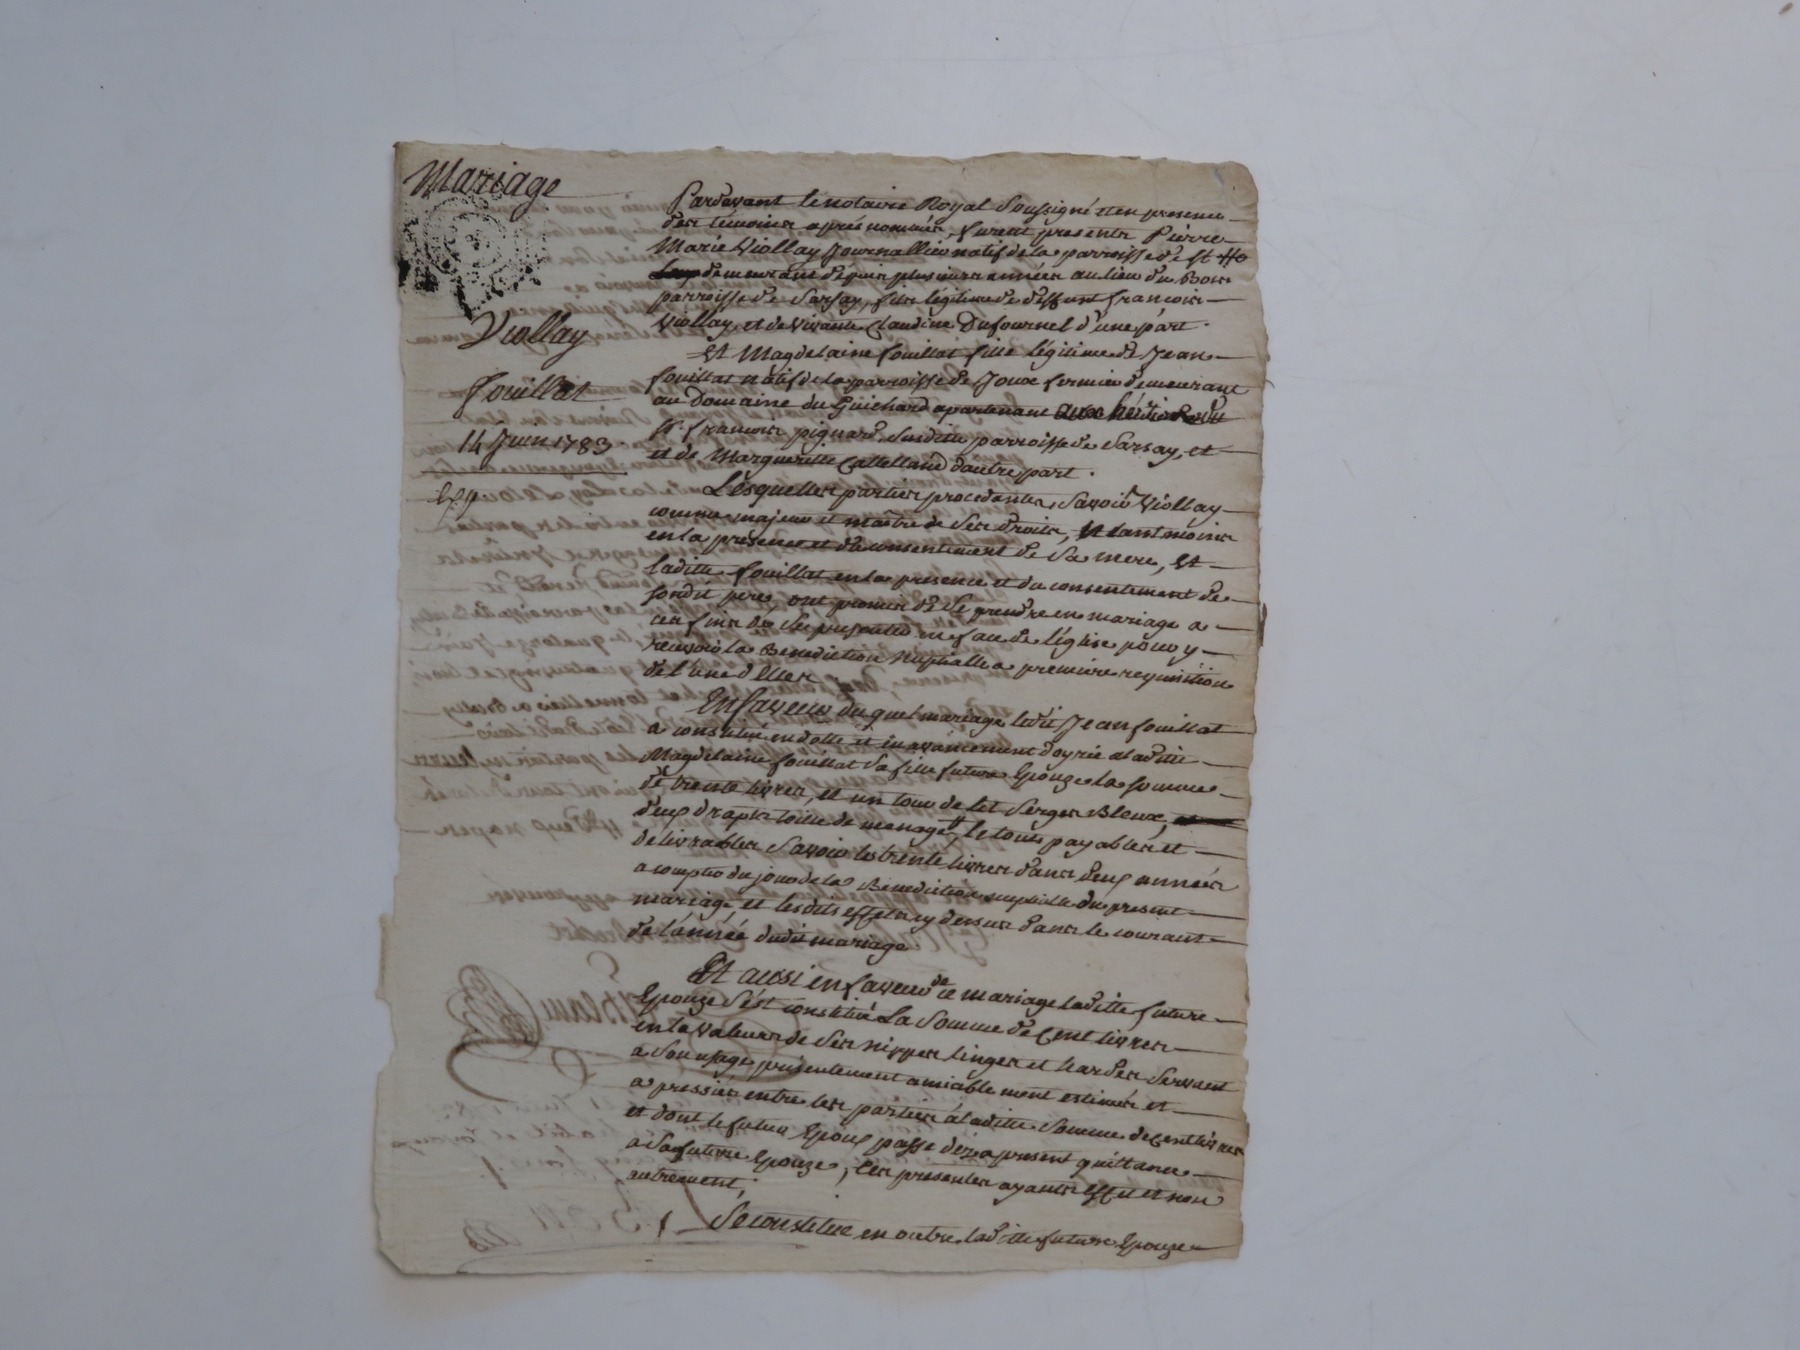 Mariage
Viollay
fouillat
14 Juin 1783
Pardevant le notaire Royal soussigné et en presence
des témoins aprés nommés, furent presents Pierre
Marie Viollay Journallier natif de la parroisse de st
demeurant depuis plusieurs années au lieu du Bois
parroisse de Sarsay, fils légitime de deffunt françois
Viollay, et de vivante Claudine Dufournel d'une part.
Et Magdelaine fouillat fille légitime de Jean
fouillat natif de la parroisse de Joux fermier demeurant
au Domaine du Guichard apartenant aux héritiers du
sr. françois pignard susditte parroisse de Sarsay, et
et de Margueritte Catelland d'autre part.
Lesquelles parties procedantes, savoir Viollay
comme majeur et maître de ses droits, Neantmoins
en la presence et du consentement de sa mere, Et
laditte fouillat en la presence et du consentement de
sondit pere, ont promis de se prendre en mariage a
ces fins de se presenter en face de l'église pour y
recevoir la Benediction Nuptialle a premiere requisition
de l'une d'elles.
En faveur du quel mariage ledit Jean fouillat
a constitué en dotte et en avancement d'oyrie a laditte
Magdelaine fouillat sa fille future Epouze la somme
de trente livres, et un tour de lit serges Bleux,
deux draps toille de menage, le tout payables et
delivrables savoir les trente livres dans deux années
a compter du jour de la Benediction nuptialle du present
mariage, et lesdits effets cy dessus dans le courant
de l'année dudit mariage.
Et aussi en faveur de ce mariage laditte future
Epouze s'est constitué La somme de Cent livres
en la valeur de ses nippes linges et hardes servant
a son usage presentement amiablement estimés et
apressiés entre les parties à laditte somme de Cent livres
et dont le futur Epoux passe dez a present quittance
a sa future Epouze, les presentes ayants effet et non
autrement;
Se constitue en outre laditte future Epouze